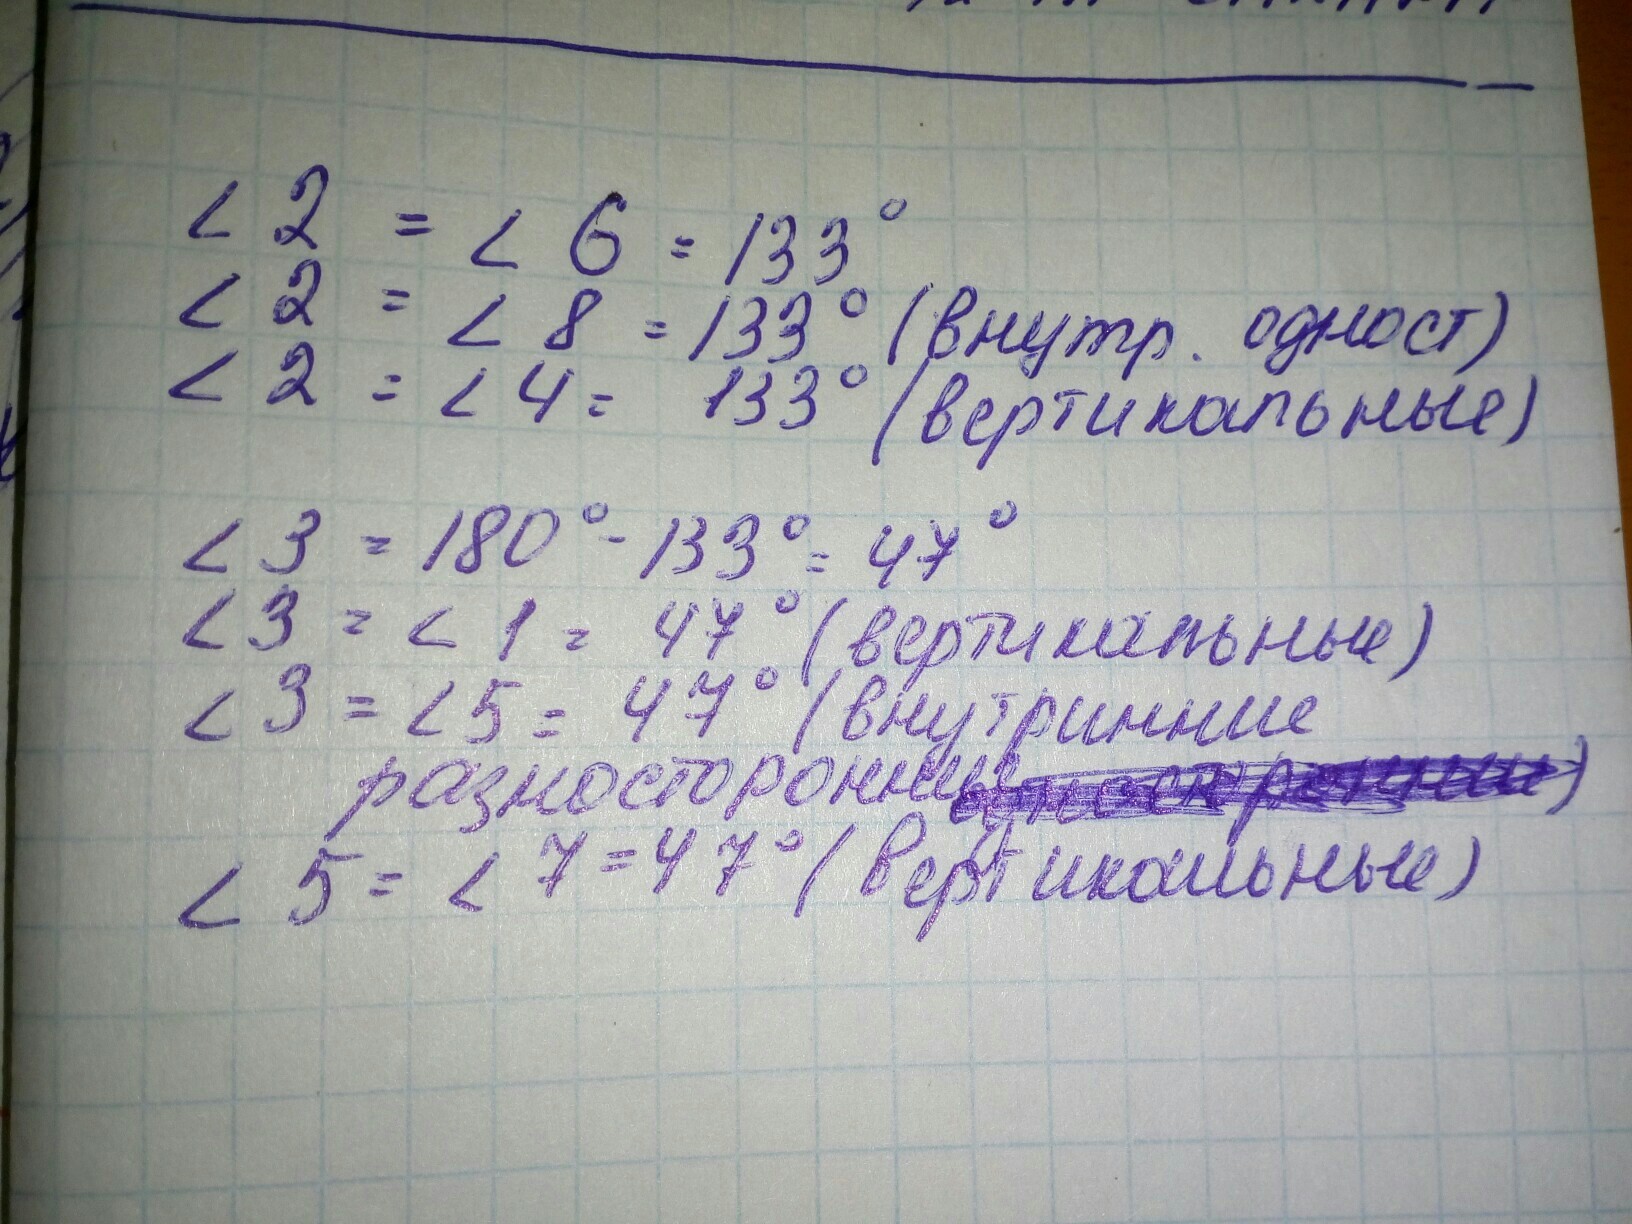 ∠2 = ∠6 = 133°
∠2 = ∠8 = 133° (внутр. одност)
∠2 = ∠4 = 133° (вертикальные)
∠3 = 180° - 133° = 47°
∠3 = ∠1 = 47° (вертикальные)
∠3 = ∠5 = 47° (внутринние
разносторонние)
∠5 = ∠7 = 47° (вертикальные)